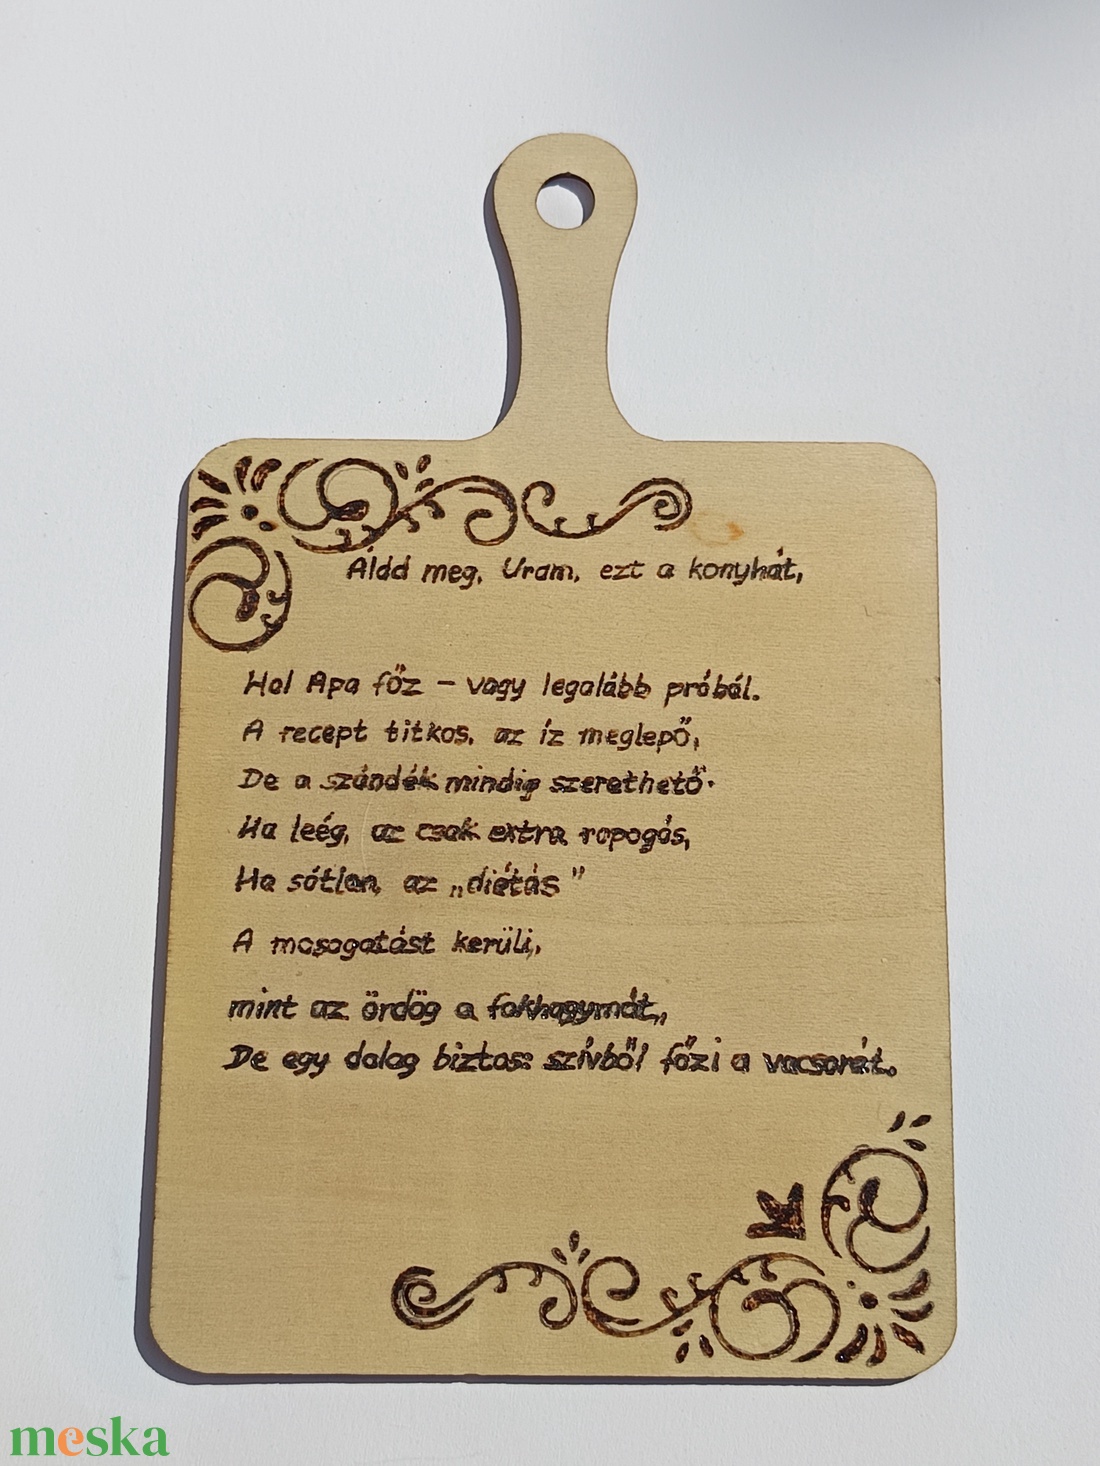 Áldd meg, Uram, ezt a konyhát,
Hol Apa főz – vagy legalább próbál.
A recept titkos, az íz meglepő,
De a szándék mindig szerethető.
Ha leég, az csak extra ropogós,
Ha sótlan, az „diétás”
A mosogatást kerüli,
mint az ördög a fokhagymát,,
De egy dolog biztos: szívből főzi a vacsorát.
meska